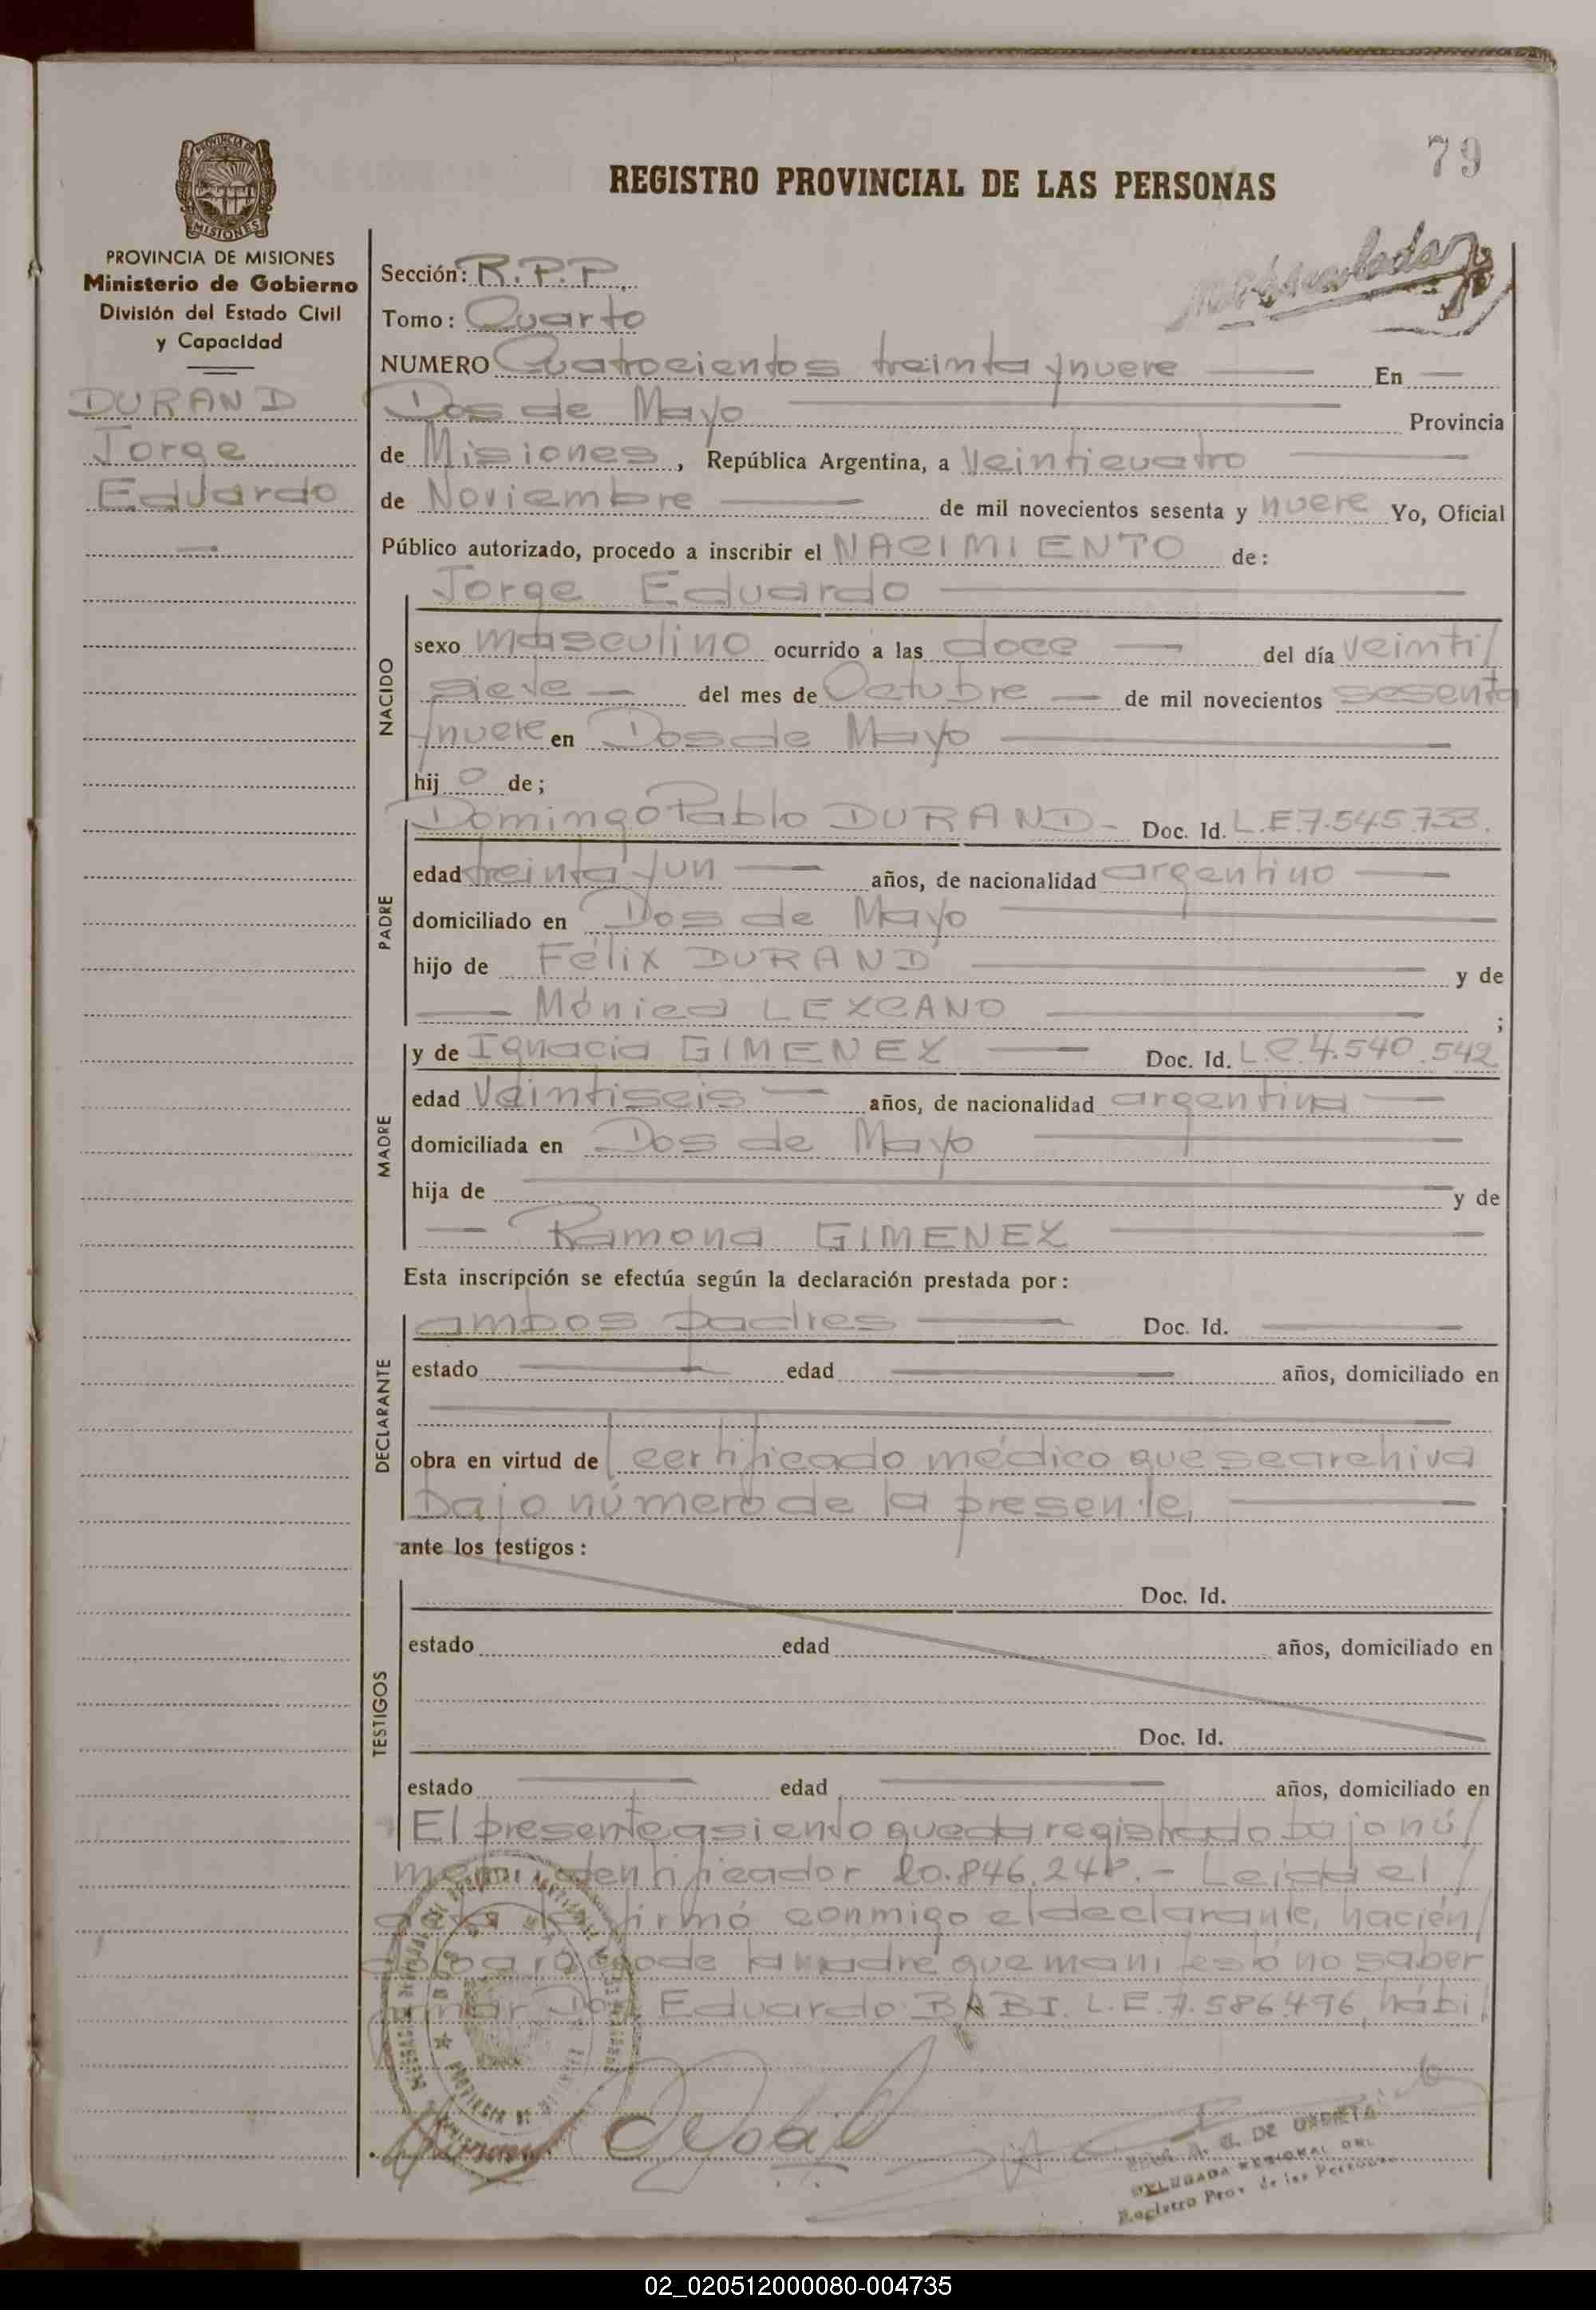 79
REGISTRO PROVINCIAL DE LAS PERSONAS
PROVINCIA DE
MISIONES
PROVINCIA DE MISIONES
Ministerio de Gobierno
División del Estado Civil
y Capacidad
DURAND
Jorge
Eduardo
Sección: R.P.P.
Tomo: Cuarto
NUMERO Cuatrocientos treinta y nueve En
Dos de Mayo Provincia
de Misiones, República Argentina, a Veinticuatro
de Noviembre de mil novecientos sesenta y nueve Yo, Oficial
Público autorizado, procedo a inscribir el NACIMIENTO de:
Jorge Eduardo
NACIDO
sexo masculino ocurrido a las doce del día veinti/
siete del mes de Octubre de mil novecientos sesenta
y nueve en Dos de Mayo
hijo de;
PADRE
Domingo Pablo DURAND- Doc. Id. L.E.7.545.733.
edad treinta y un años, de nacionalidad argentino
domiciliado en Dos de Mayo
hijo de Félix DURAND y de
Mónica LEZCANO ;
MADRE
y de Ignacia GIMENEZ Doc. Id. L.C.4.540.542
edad Veintiseis años, de nacionalidad argentina
domiciliada en Dos de Mayo
hija de y de
Ramona GIMENEZ
Esta inscripción se efectúa según la declaración prestada por:
DECLARANTE
ambos padres Doc. Id.
estado edad años, domiciliado en
obra en virtud de certificado médico que se archiva
bajo número de la presente,
ante los testigos:
TESTIGOS
Doc. Id.
estado edad años, domiciliado en
Doc. Id.
estado edad años, domiciliado en
El presente asiento queda registrado bajo nú/
mero identificador 20.846.248.- Leida el
acta la firmó conmigo el declarante, hacién/
dolo a ruego de la madre que manifestó no saber
firmar Don Eduardo BABI. L.E.7.586.496, hábil
DELEGADA REGIONAL DEL
Registro Prov. de las Personas
02_020512000080-004735